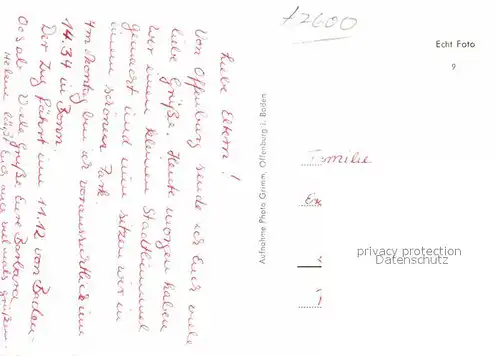 Liebe Eltern!
Von Offenburg sende ich Euch viele
liebe Grüße. Heute morgen haben
wir einen kleinen Stadtbummel
gemacht und nun sitzen wir in
einem schönen Park.
Am Montag bin ich voraussichtlich um
14.34 in Bonn.
Der Zug fährt um 11.12 von Baden-
Oos ab. Viele Grüße Eure Barbara
Helene läßt Euch auch vielmals grüßen.
Aufnahme Photo Grimm, Offenburg i. Baden
Echt Foto
9
Familie
privacy protection
Datenschutz